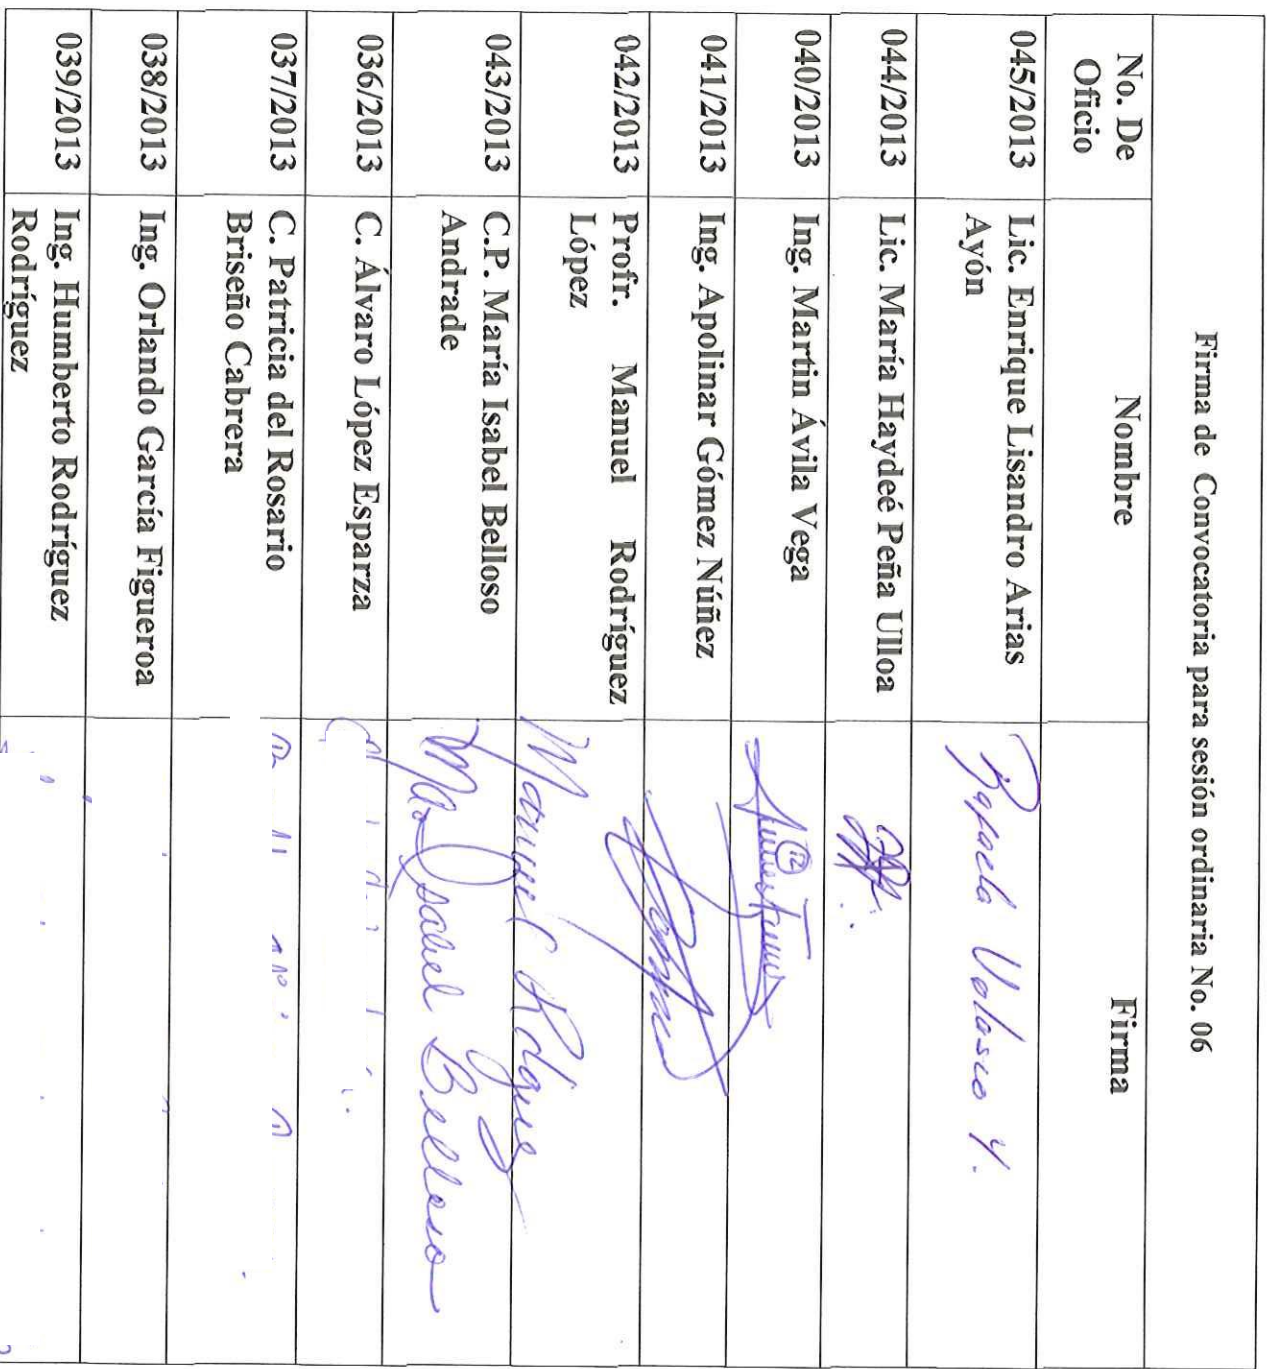 Firma de Convocatoria para sesión ordinaria No. 06
No. De Oficio Nombre Firma
045/2013 Lic. Enrique Lisandro Arias Rafaela Velasco Y.
Ayón
044/2013 Lic. María Haydeé Peña Ulloa
040/2013 Ing. Martin Ávila Vega
041/2013 Ing. Apolinar Gómez Núñez
042/2013 Profr. Manuel Rodríguez Manuel Rdguez
López
043/2013 C.P. María Isabel Belloso Ma Isabel Belloso
Andrade
036/2013 C. Álvaro López Esparza
037/2013 C. Patricia del Rosario
Briseño Cabrera
038/2013 Ing. Orlando García Figueroa
039/2013 Ing. Humberto Rodríguez
Rodríguez